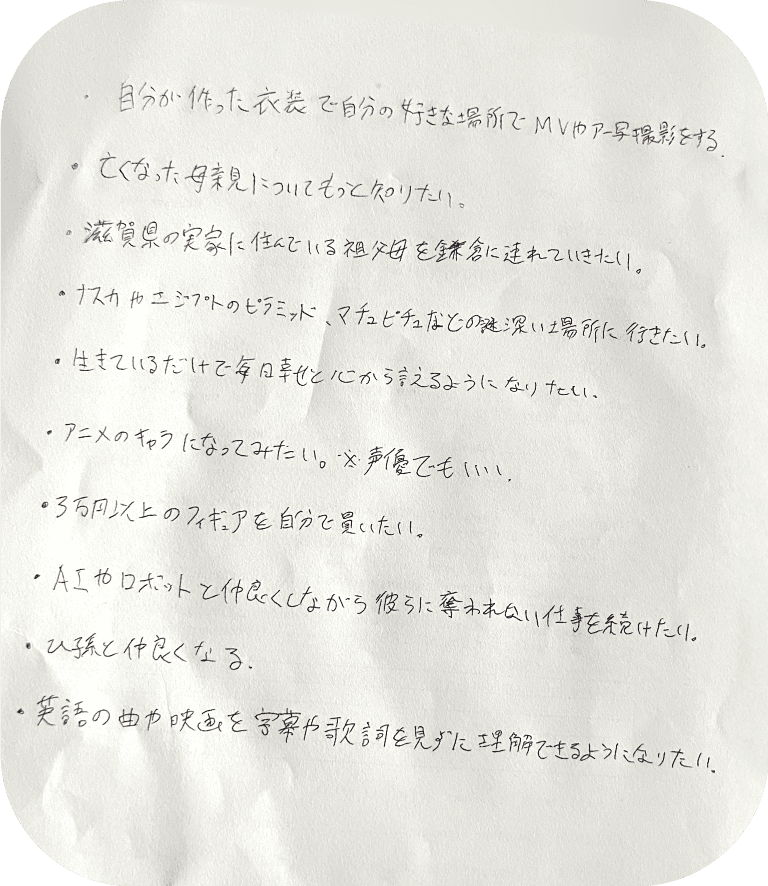 ・自分が作った衣装で自分の好きな場所でMVやアー写撮影をする.
・亡くなった母親についてもっと知りたい。
・滋賀県の実家に住んでいる祖父母を鎌倉に連れていきたい。
・ナスカやエジプトのピラミッド、マチュピチュなどの謎深い場所に行きたい。
・生きているだけで毎日幸せと心から言えるようになりたい.
・アニメのキャラになってみたい。※声優でもいい.
・3万円以上のフィギュアを自分で買いたい。
・AIやロボットと仲良くしながら彼らに奪われない仕事を続けたい。
・ひ孫と仲良くなる.
・英語の曲や映画を字幕や歌詞を見ずに理解できるようになりたい.